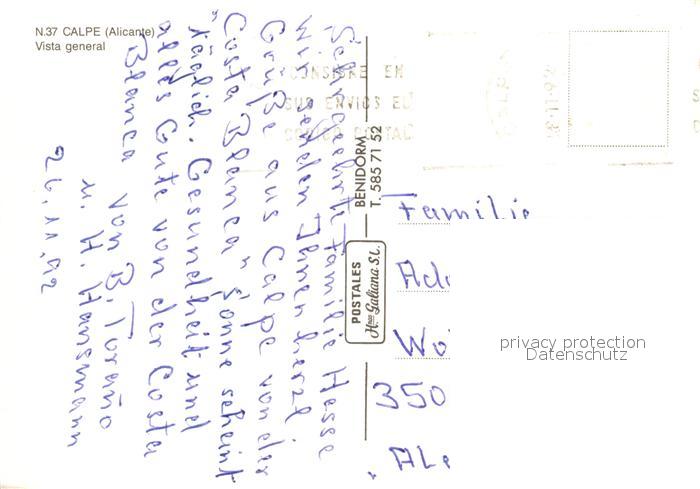 N.37 CALPE (Alicante)
Vista general
Sehr geehrte Familie Hesse
wir senden Ihnen herzl
Grüße aus Calpe von der
Costa Blanca "Sonne scheint
täglich. Gesundheit und
alles Gute von der Costa
Blanca von B. Toraño
u. H. Hansmann
26.11.92
CONSIGNE EN
SUS ENVIOS EL
CODIGO POSTAL
POSTALES
Hnos Galiana S.L.
BENIDORM
T. 585 71 52
Familie
Ad
Wo
350
AL
privacy protection
Datenschutz